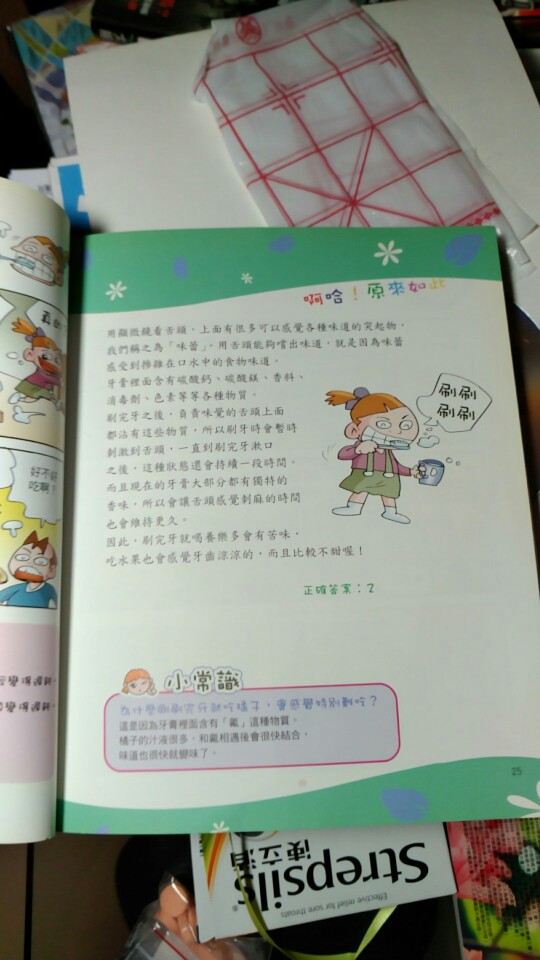 啊哈！原來如此
用顯微鏡看舌頭，上面有很多可以感覺各種味道的突起物，
我們稱之為「味蕾」。用舌頭能夠嚐出味道，就是因為味蕾
感受到摻雜在口水中的食物味道。
牙膏裡面含有碳酸鈣、碳酸鎂、香料、
消毒劑、色素等等各種物質。
刷完牙之後，負責味覺的舌頭上面
都沾有這些物質，所以刷牙時會暫時
刺激到舌頭，一直到刷完牙漱口
之後，這種狀態還會持續一段時間。
而且現在的牙膏大部分都有獨特的
香味，所以會讓舌頭感覺刺麻的時間
也會維持更久。
因此，刷完牙就喝養樂多會有苦味，
吃水果也會感覺牙齒涼涼的，而且比較不甜喔！
刷刷
刷刷
正確答案：2
小常識
為什麼剛刷完牙就吃橘子，會感覺特別難吃？
這是因為牙膏裡面含有「氟」這種物質。
橘子的汁液很多，和氟相遇後會很快結合，
味道也很快就變味了。
25
好不好
吃啊！
Strepsils
使立消
Effective relief for sore throats